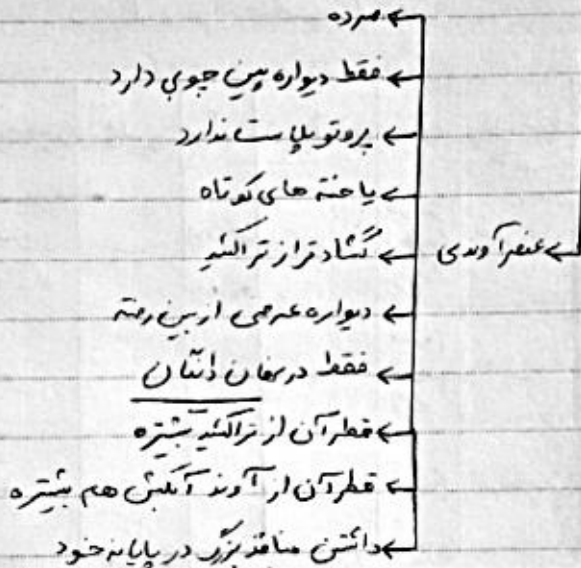 ← مرده
← فقط دیواره پسین چوبی دارد
← پروتوپلاست ندارد
← یاخته های کوتاه
← گشادتر از تراکئید
← عنصر آوندی
← دیواره عرضی از بین رفته
← فقط در نهان دانگان
← قطر آن از تراکئید بیشتره
← قطر آن از آوند آبکش هم بیشتره
← داشتن منافذ بزرگ در پایانه خود